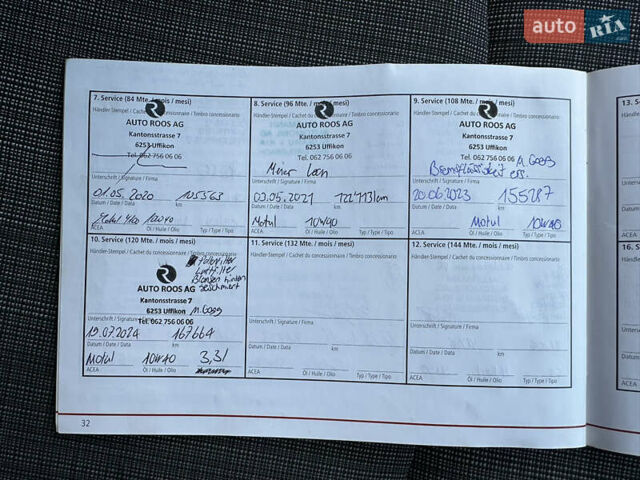 auto RIA .com
7. Service (84 Mte. / mois / mesi)
Händler-Stempel / Cachet du concessionnaire / Timbro concessionario
AUTO ROOS AG
Kantonsstrasse 7
6253 Uffikon
Tel. 062 756 06 06
Unterschrift / Signature / Firma
01.05.2020 105563
Datum / Date / Data km
Motul 10W40
ACEA Öl / Huile / Olio Typ / Type / Tipo
8. Service (96 Mte. / mois / mesi)
Händler-Stempel / Cachet du concessionnaire / Timbro concessionario
AUTO ROOS AG
Kantonsstrasse 7
6253 Uffikon
Tel. 062 756 06 06
Unterschrift / Signature / Firma
03.05.2021 122'113km
Datum / Date / Data km
Motul 10W40
ACEA Öl / Huile / Olio Typ / Type / Tipo
9. Service (108 Mte. / mois / mesi)
Händler-Stempel / Cachet du concessionnaire / Timbro concessionario
AUTO ROOS AG
Kantonsstrasse 7
6253 Uffikon
Tel. 062 756 06 06
Bremsflüssigkeit ers.
Unterschrift / Signature / Firma
20.06.2023 155287
Datum / Date / Data km
Motul 10W40
ACEA Öl / Huile / Olio Typ / Type / Tipo
10. Service (120 Mte. / mois / mesi)
Händler-Stempel / Cachet du concessionnaire / Timbro concessionario
Luftfilter
Bremsen hinten
geschmiert
AUTO ROOS AG
Kantonsstrasse 7
6253 Uffikon
Tel. 062 756 06 06
Unterschrift / Signature / Firma
19.07.2024 167664
Datum / Date / Data km
Motul 10W40 3,3l
ACEA Öl / Huile / Olio
11. Service (132 Mte. / mois / mesi)
Händler-Stempel / Cachet du concessionnaire / Timbro concessionario
Unterschrift / Signature / Firma
Datum / Date / Data km
ACEA Öl / Huile / Olio Typ / Type / Tipo
12. Service (144 Mte. / mois / mesi)
Händler-Stempel / Cachet du concessionnaire / Timbro concessionario
Unterschrift / Signature / Firma
Datum / Date / Data km
ACEA Öl / Huile / Olio Typ / Type / Tipo
32
13. S
Händler
Untersch
Datum
ACEA
16. S
Händler
Untersch
Datum
ACEA